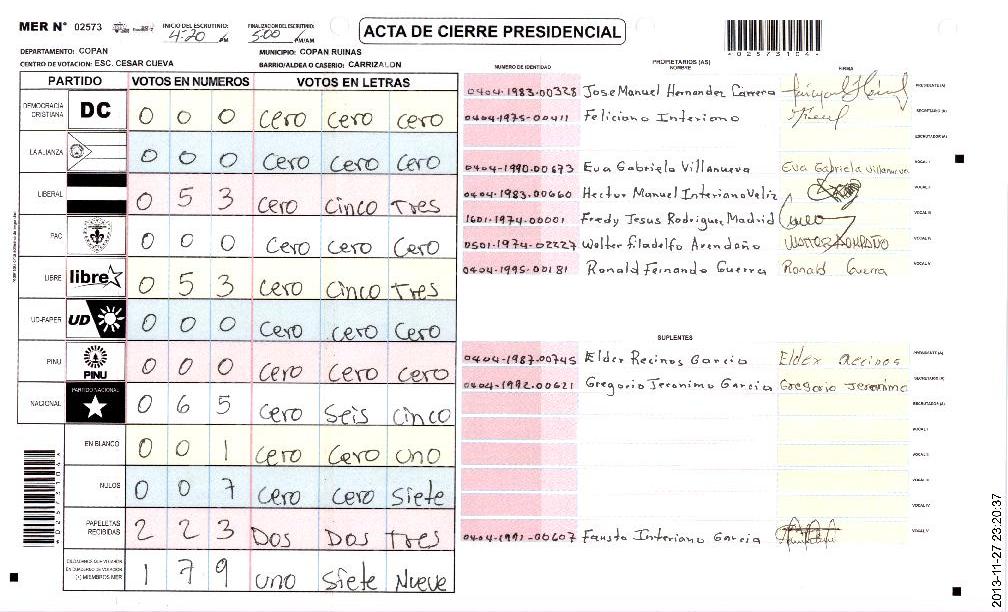 MER N° 02573
INICIO DEL ESCRUTINIO: 4:20 PM
FINALIZACION DEL ESCRUTINIO: 5:00 PM/AM
ACTA DE CIERRE PRESIDENCIAL
DEPARTAMENTO: COPAN
MUNICIPIO: COPAN RUINAS
CENTRO DE VOTACION: ESC. CESAR CUEVA
BARRIO/ALDEA O CASERIO: CARRIZALON
PARTIDO VOTOS EN NUMEROS VOTOS EN LETRAS
DEMOCRACIA CRISTIANA DC 0 0 0 Cero Cero Cero
LA ALIANZA 0 0 0 Cero Cero Cero
LIBERAL 0 5 3 Cero Cinco Tres
PAC 0 0 0 Cero Cero Cero
LIBRE libre 0 5 3 Cero Cinco Tres
UD-FAPER UD 0 0 0 Cero Cero Cero
PINU PINU 0 0 0 Cero Cero Cero
NACIONAL PARTIDO NACIONAL 0 6 5 Cero Seis Cinco
EN BLANCO 0 0 1 Cero Cero Uno
NULOS 0 0 7 Cero Cero Siete
PAPELETAS RECIBIDAS 2 2 3 Dos Dos Tres
CIUDADANOS QUE VOTARON EN CUADERNO DE VOTACION (+) MIEMBROS MER 1 7 9 Uno Siete Nueve
PROPIETARIOS (AS)
NUMERO DE IDENTIDAD NOMBRE FIRMA
0404-1983-00328 Jose Manuel Hernandez Carrera PRESIDENTE (A)
0404-1975-00411 Feliciano Interiano SECRETARIO (A)
ESCRUTADOR (A)
0404-1990-00673 Eva Gabriela Villanueva Eva Gabriela Villanueva VOCAL I
0404-1983-00660 Hector Manuel Interiano Veliz VOCAL II
1601-1974-00001 Fredy Jesus Rodriguez Madrid VOCAL III
0501-1974-02227 Wolter Filadelfo Avendaño VOCAL IV
0404-1995-00181 Ronald Fernando Guerra Ronald Guerra VOCAL V
SUPLENTES
0404-1987-00745 Elder Recinos Garcia Elder Recinos PRESIDENTE (A)
0404-1992-00621 Gregorio Jeronimo Garcia Gregorio Jeronimo SECRETARIO (A)
ESCRUTADOR (A)
VOCAL I
VOCAL II
VOCAL III
VOCAL IV
0404-1991-00607 Fausto Interiano Garcia VOCAL V
2013-11-27 23:20:37